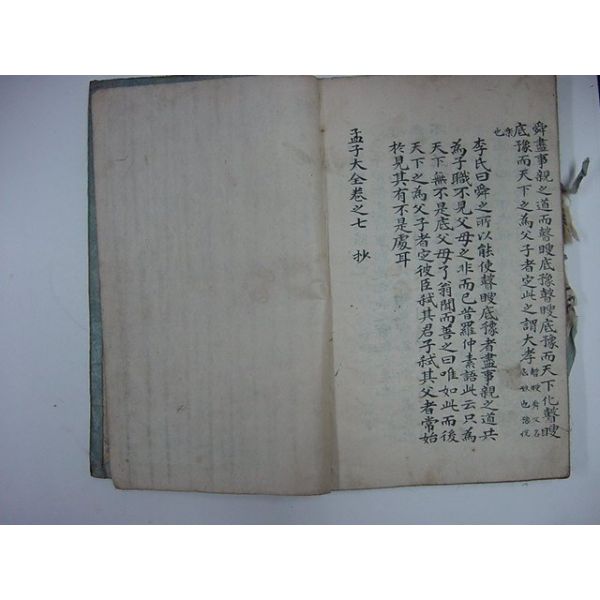 舜盡事親之道而瞽瞍底豫瞽瞍底豫而天下化瞽瞍
底豫而天下之為父子者定此之謂大孝 瞽瞍舜父名
底致也豫悅
樂也
李氏曰舜之所以能使瞽瞍底豫者盡事親之道共
為子職不見父母之非而已昔羅仲素語此云只為
天下無不是底父母了翁聞而善之曰唯如此而後
天下之為父子者定彼臣弒其君子弒其父者常始
於見其有不是處耳
孟子大全卷之七 抄